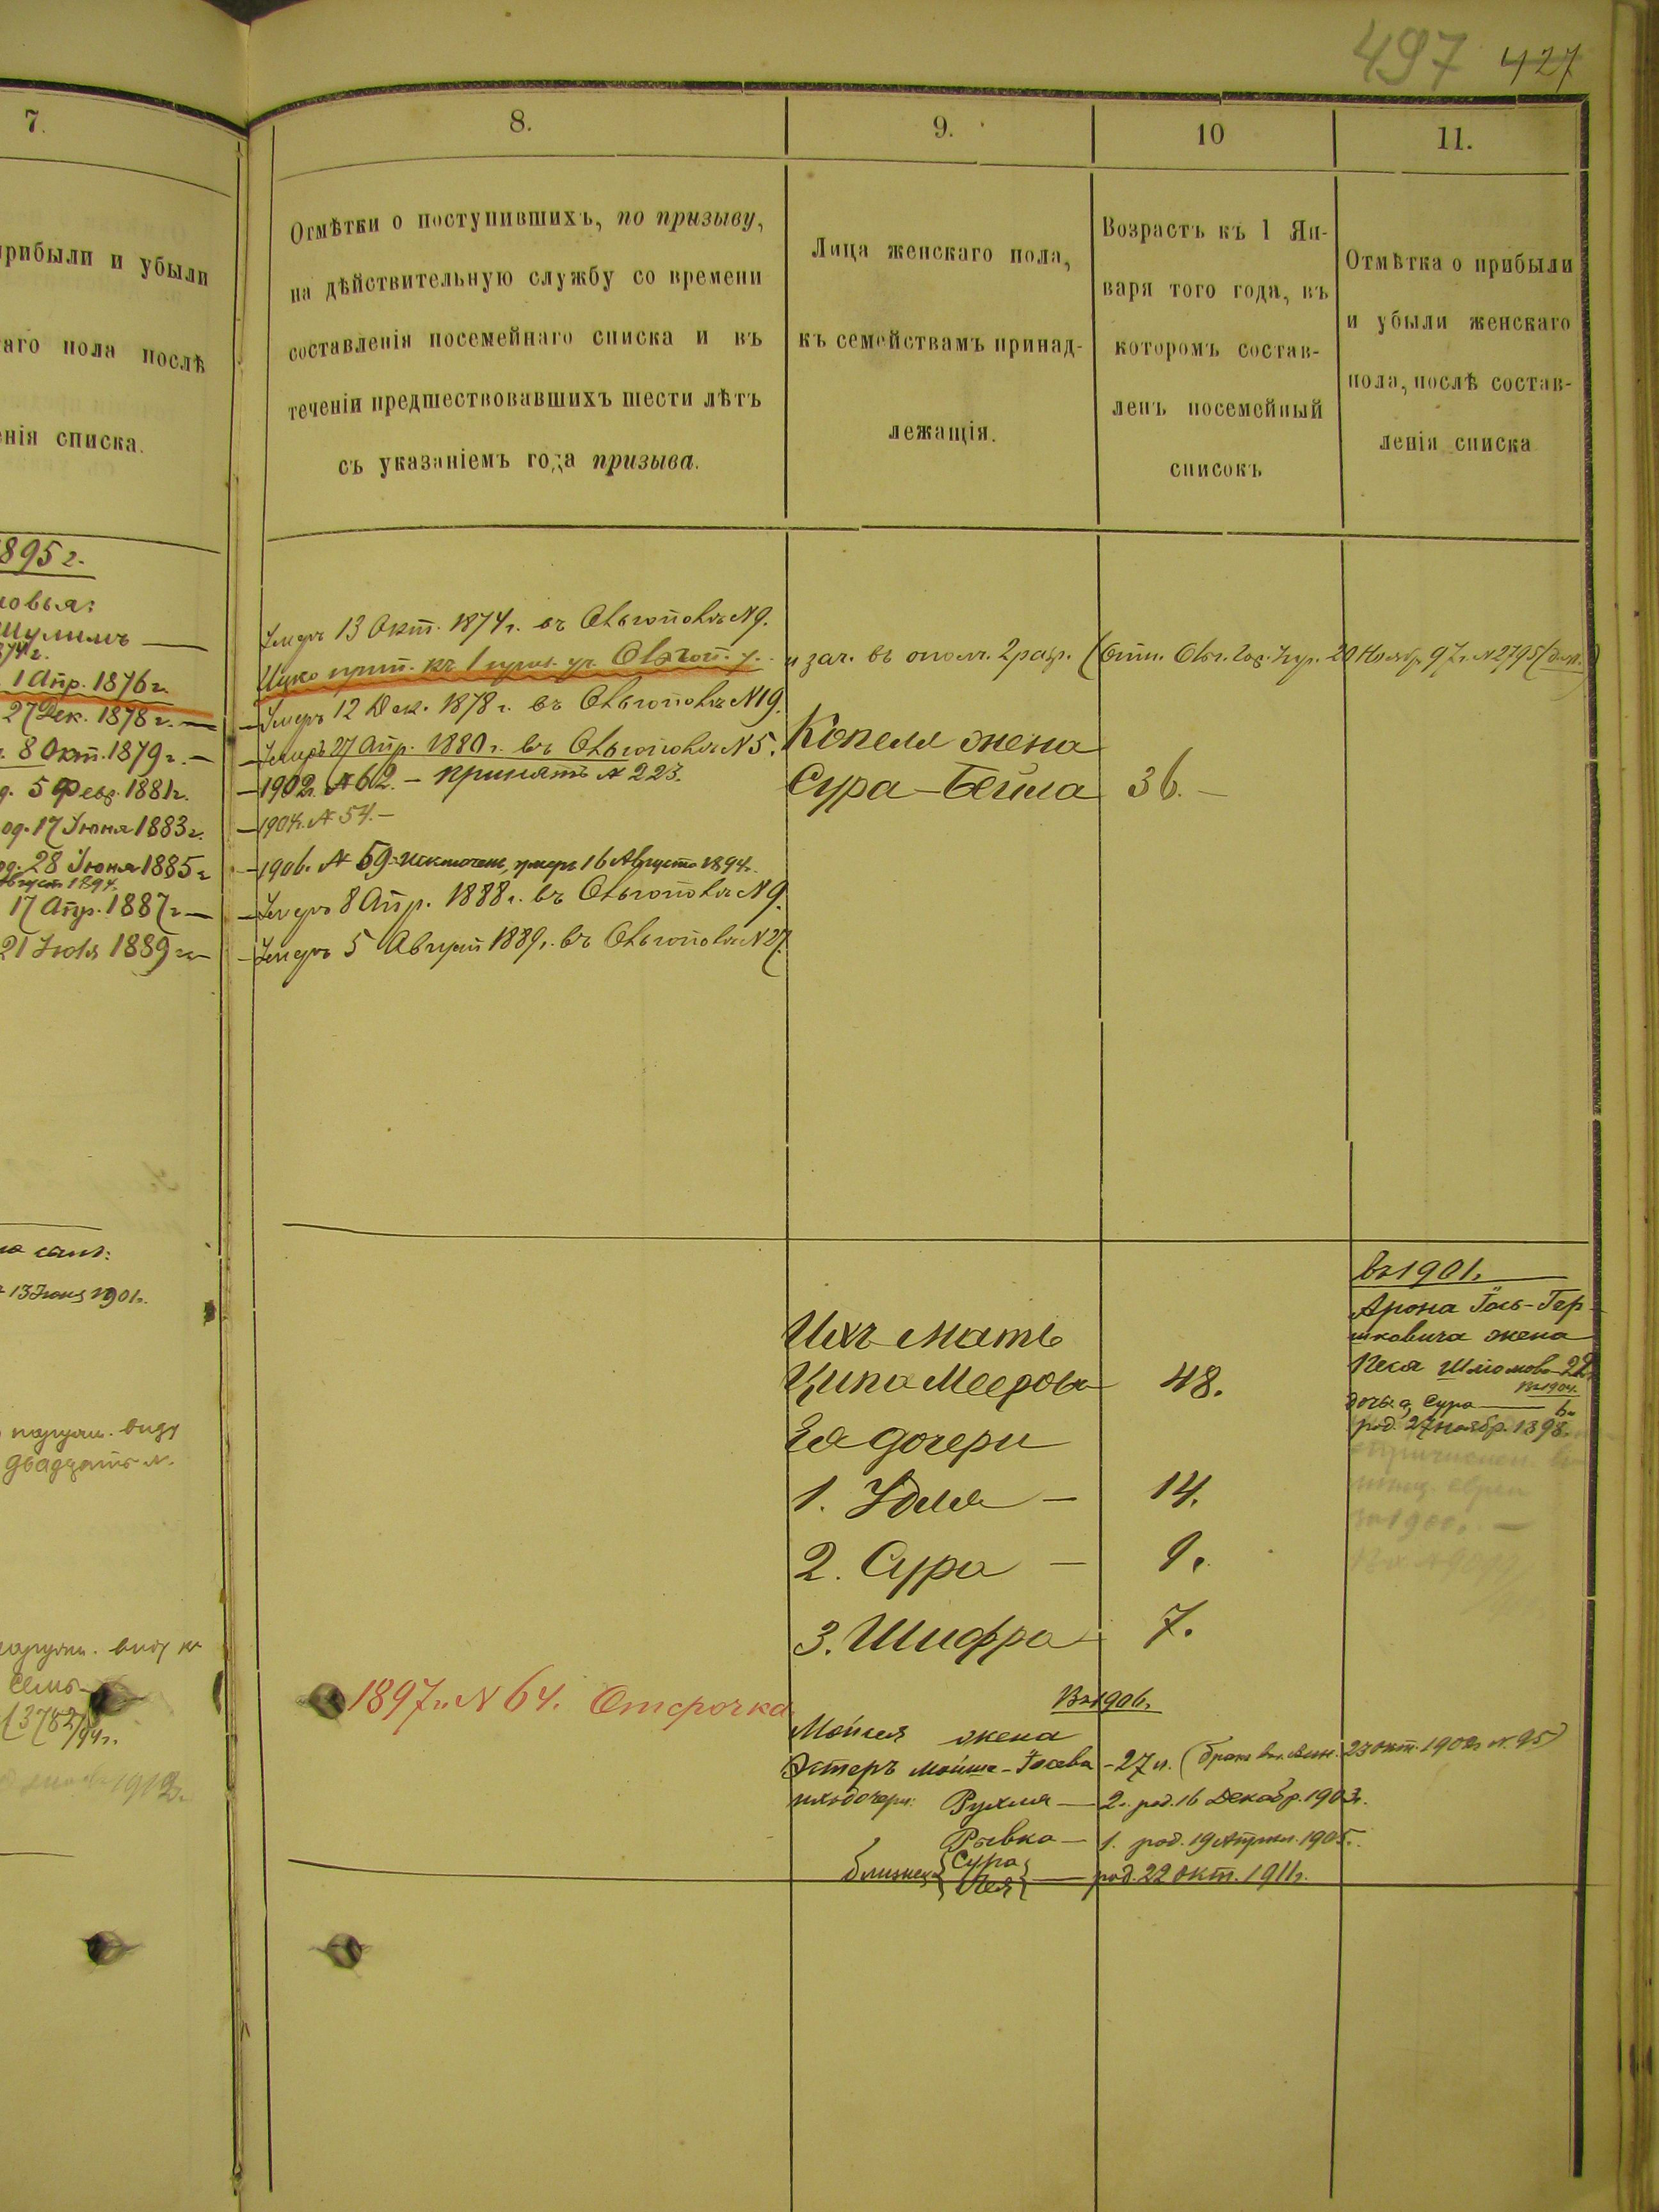 497 427
7.
прибыли и убыли
аго пола послѣ
енія списка.
8.
Отмѣтки о поступившихъ, по призыву,
на дѣйствительную службу со времени
составленія посемейнаго списка и въ
теченіи предшествовавшихъ шести лѣтъ
съ указаніемъ года призыва.
9.
Лица женскаго пола,
къ семействамъ принад-
лежащія.
10
Возрастъ къ 1 Ян-
варя того года, въ
которомъ состав-
ленъ посемейный
списокъ
11.
Отмѣтка о прибыли
и убыли женскаго
пола, послѣ состав-
ленія списка
895 г.
новья:
Шулимъ —
874 г.
1 Апр. 1876 г.
27 Дек. 1878 г. —
8 Окт. 1879 г. —
5 Февр. 1881 г.
од. 17 Іюня 1883 г.
од. 28 Іюня 1885 г
Август. 1894.
17 Апр. 1887 г —
21 Іюля 1889 г —
13 Іюня 1901 г.
виду
двадцать л.
виду
семь
(3782/94 г.
1912 г.
Умеръ 13 Окт. 1874 г. въ Ольгополѣ N 9.
Ицко прип. къ 1 приз. уч. Ольгоп. у. и зач. въ ополч. 2 разр. (Отн. Ольг. Гор. Упр. 20 Ноябр. 97 г. N 2795
— Умеръ 12 Дек. 1878 г. въ Ольгополѣ N 19.
— Умеръ 27 Апр. 1880 г. въ Ольгополѣ N 5.
— 1902 г. N 62. — принятъ N 223.
— 1904 г. N 54. —
— 1906. N 59 исключенъ, умеръ 16 Августа 1894 г.
— Умеръ 8 Апр. 1888 г. въ Ольгополѣ N 9.
— Умеръ 5 Август 1889 г. въ Ольгополѣ N 27.
Копеля жена
Сура-Бейла 36. —
Ихъ мать
Ципа Меерова 48.
Ея дочери
1. Удля — 14.
2. Сура — 9.
3. Шифра 7.
въ 1901 г.
Арона Іось-Гер-
шковича жена
Песя Шломова 22
въ 1904.
дочь а, Сура — 6 л
род. 27 ноябр. 1898 г.
1897 г. N 64. Отсрочка
Въ 1906 г.
Мойшея жена
Эстеръ Мойше-Іосева — 27 л. (бракъ 23 окт. 1902 г. N. 95)
ихъ дочери: Рухля — 2. род. 16 Декабр. 1903 г.
Рывка — 1. род. 19 Апрел. 1905 г.
близнецы {Сура} {Лея} — род. 22 окт. 1911 г.